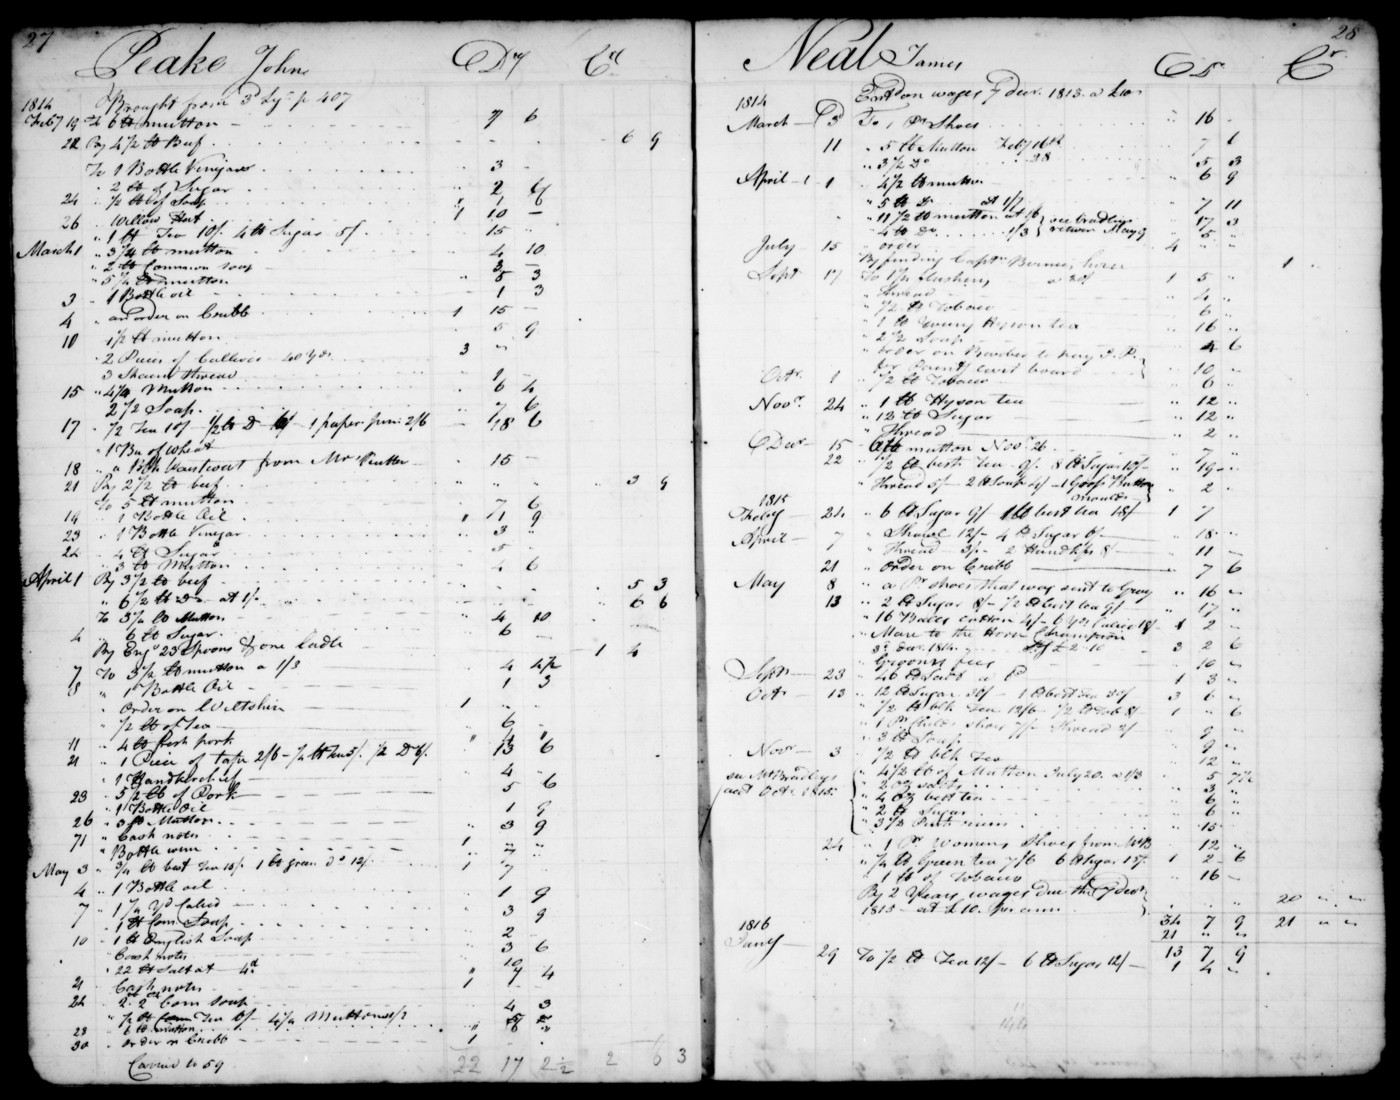 27
Peake John Dr Cr
1814 Brought from 3d Lgr p 407
Feby 19 To 6 lb mutton 7 6
22 By 4 1/2 lb Beef 6 9
To 1 Bottle Vinegar 3 -
" 2 lb of Sugar 2 6
24 " 1/2 lb of Soap 1 6
26 " Willow Hat 1 10 -
" 1 lb Tea 10/. 4 lb Sugar 5/. 15 "
March 1 " 3 3/4 lb mutton 4 10
" 2 lb Common soap 3 -
" 3 1/2 lb mutton 5 3
3 " 1 Bottle oil 1 3
4 " an order on Cribb 1 15 -
10 " 4 1/2 lb mutton 5 9
" 2 Pieces of Callicoe 40 yds 3 "
" 3 Skains thread
15 " 4 3/4 Mutton 6 4
2 1/2 Soap 7 6
17 " 1/2 Tea 10/ 1 paper pins 2/6 18 6
" 1 Bu of wheat
18 " a Waistcoat from Mr Rutter 15 -
21 By 2 1/2 lb beef 3 9
To 5 lb mutton 7 6
19 " 1 Bottle Oil 1 9
23 " 1 Bottle Vinegar 3 "
24 " 4 lb Sugar 5 -
" 3 lb Mutton 4 6
April 1 By 3 1/2 lb beef 5 3
" 6 1/2 lb Do at 1/. 6 6
To 3 3/4 lb Mutton 4 10
4 " 6 lb Sugar 6 -
By Engs 23 spoons & one ladle 1 4
7 To 3 1/2 lb mutton a 1/3 4 4 1/2
8 " 1 Bottle Oil 1 3
" Order on Wiltshire 1 " "
" 1/2 lb of Tea 6 -
11 " 4 lb fresh pork
21 " 1 Piece of tape 2/6 - 1/2 lb Tea 5/. 1/2 Do 6/. 13 6
" 1 Handkerchief 4 -
23 " 5 1/2 lb of Pork 5 6
" 1 Bottle Oil 1 9
26 " 3 lb Mutton 3 9
" Cash notes 1 " "
" Bottle wine 7 "
May 3 " 3/4 lb best Tea 15/. 1 lb green Do 12/. 1 7
4 " 1 Bottle oil 1 9
7 " 1 3/4 Yd Calico 3 9
" 1 lb Com Soap 2 -
10 " 1 lb English Soap 3 6
Cash notes 10
" 22 lb Salt at 4d 7 4
21 " Cash notes 1
24 " 2 lb Com soap 4 3
" 1/2 lb Tea 6/. 4 3/4 Mutton
28 " 6 lb mutton 6 "
30 " order on Cribb 1 -
Carried to 59 22 17 2 1/2 2 6 3
28
Neal James Dr Cr
1814 Eastdon wages 7 decr 1813 a £10
March 3 To 1 Pr Shoes " 16 -
11 " 5 lb Mutton Feby 16th 7 6
" 3 1/2 Do 28 5 3
April 1 " 4 1/2 lb mutton " 6 9
" 5 lb Do at 1/7 7 11
" 11 1/2 lb mutton at 1/6 } see bradleys 17 3
" 4 lb Do 1/3 } return May 9 " 5 "
July 15 " order 4 " "
By finding Captn Birnies horse 1
Septr 17 To 1 1/2 flushing a 20/ 1 5 "
" Thread " 4 "
" 1/2 lb Tobaco " 6 "
" 1 lb Young Hyson tea " 16 "
" 2 1/2 Soap 4 6
" order on Barber to pay J. P. }
for Parents board } " 10 "
Octr 1 " 1/2 lb Tobaco " 6 "
Novr 24 " 1 lb Hyson tea " 12 "
" 12 lb Sugar " 12 "
" Thread " 2 "
Decr 15 " 6 lb mutton Novr 26 " 7 "
22 " 1/2 lb best Tea 9/. 8 lb Sugar 10/- " 19 "
" Thread 5/- 2 lb Soap 4/- 1 Groce Button
moulds } " 2 "
1815
Feby 24 " 6 lb Sugar 9/ 1 lb best tea 18/- 1 7
April 7 " Shawl 12/- 4 lb Sugar 6/- " 18 "
" Thread 3/- 2 Handkfs 8/- " 11 -
21 " Order on Cribb " 7 6
May 8 " a Pr shoes that was sent to Gray " 16 "
13 " 2 lb Sugar 8/- 1/2 lb best tea 9/ " 17 "
" 16 Balls cotton 4/- 6 Yds Calico 18/- 1 2 "
" Mare to the Horse Champion
3d Decr 1814 £2-10 3 2 6
" Grooms fees " 10 "
Septr 23 " 46 lb Salt a 6d 1 3 "
Octr 13 " 12 lb Sugar 30/- 1 lb best tea 30/ 3 6 "
" 1/2 lb blk Tea 12/6 - 1/2 lb Tob 8/ 1 " 6
" 1 Pr Childs shoes 7/- Thread 2/ 9 "
" 3 lb Soap 9 "
Novr 3 " 1/2 lb blk Tea 12 "
see Mr Bradleys " 4 1/2 lb of Mutton July 20. a 1/3 " 5 7 1/2
acct Octr 1815 " 2 oz salts " 3 "
" 4 oz best tea " 6 "
" 2 lb Sugar " 6 "
" 3 1/2 Pints rum " 15
24 " 1 Pr Womens Shoes from WB " 12 "
" 1/4 lb Green tea 7/6 6 lb Sugar 15/. 1 2 6
" 1 lb of Tobaco " 16 -
By 2 Years wages due this 7 decr }
1815 - at £10. per ann } 20 " "
34 7 9 21 " "
21 " "
1816 13 7 9
Jany 29 To 1/2 lb Tea 12/- 6 lb Sugar 12/- 1 4 "